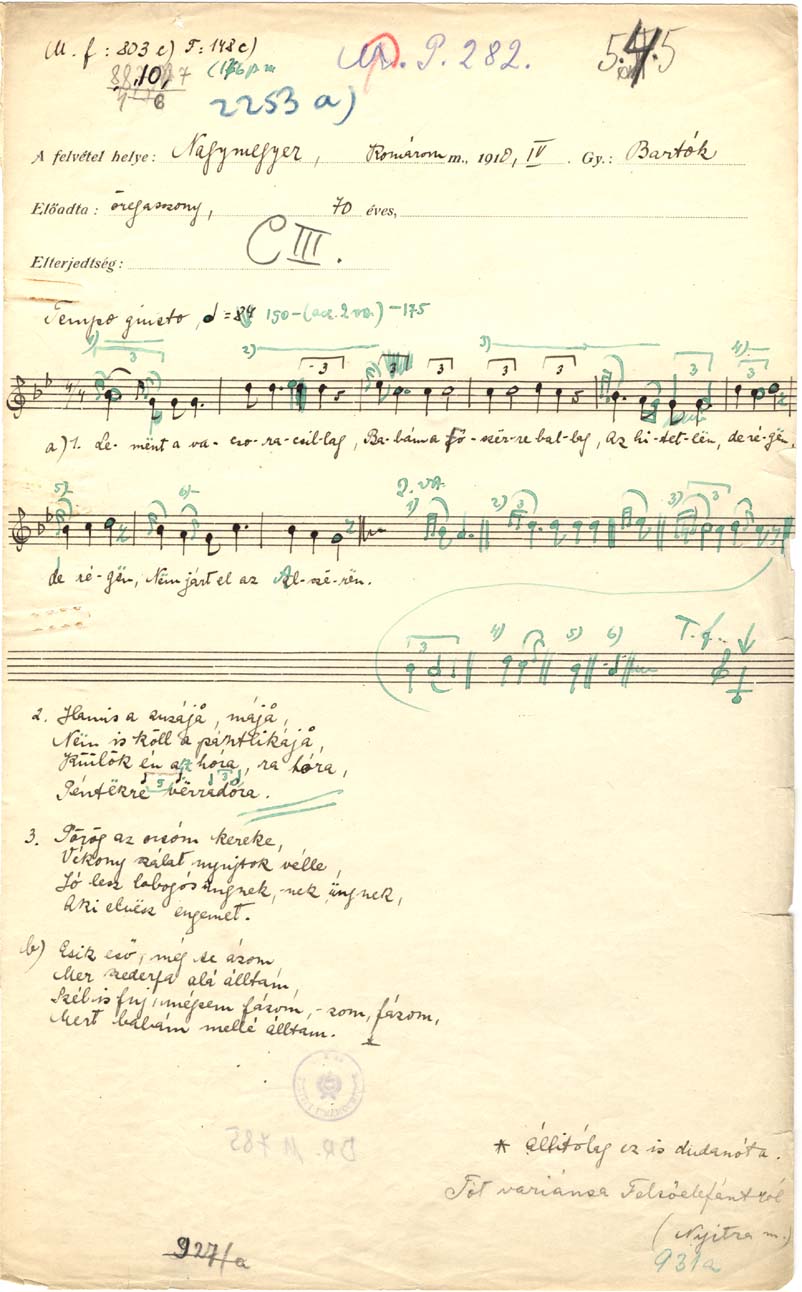 (M. f: 803 c) F: 148 c)
Mp. P. 282.
5.4.5
2253 a)
A felvétel helye: Nagymegyer, Komárom m., 1910, IV. Gy.: Bartók
Előadta: öregasszony, 70 éves,
C III.
Elterjedtség:
Tempo giusto, = 84 150-(acc. 2 va.) -175
1) 3 2) 3 3 3 3) 3 3 3 4) 3
a) 1. Le- mënt a va- cso-ra-csil-lag, Ba-bám a Fő-szér-re bal-lag, Az hi-tet-lën, de ré-gën,
5) 6) 2. va. 1) 2) 3 3) 3
de ré-gën, Nëm járt el az Al-szé-rën.
3 4) 5) 6) T. f.
2. Hamis a
Nëm is köll a pántlikájå,
Küllök én az hóra, ra hóra,
Péntëkre vërradóra.
3. Pörög az orsóm kereke,
Vékony szálat nyujtok vélle,
Jó lesz lobogós üngnek, -nek üngnek,
Aki elvësz engemet.
b) Esik eső, még se ázom
Mer szederfa alá álltam,
Szél is fuj, mégsem fázom, -zom, fázom,
Mert babám mellé álltam. *
DR. M 785
* állitólag ez is dudanóta.
Tót variánsa Felsőelefántról
(Nyitra m.)
927/a
931a